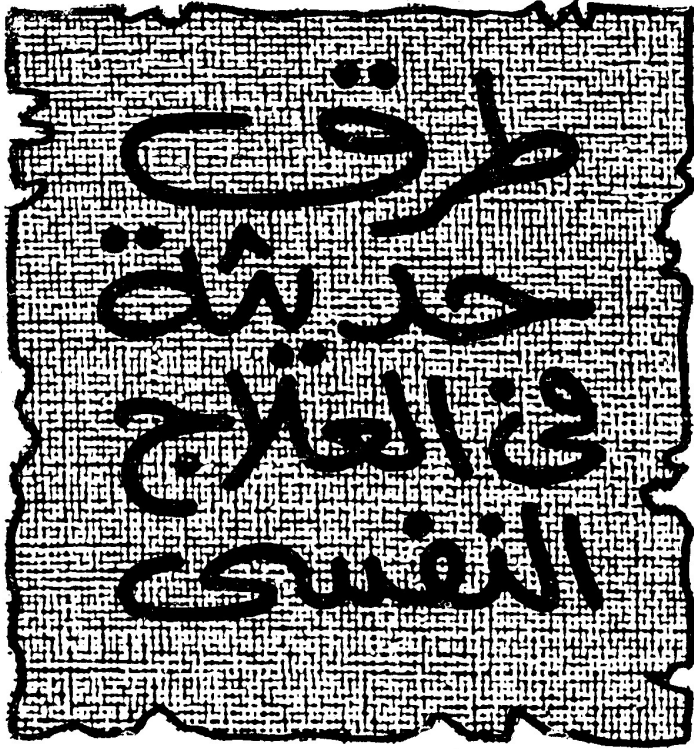 طرق
حديثة
فى العلاج
النفسى